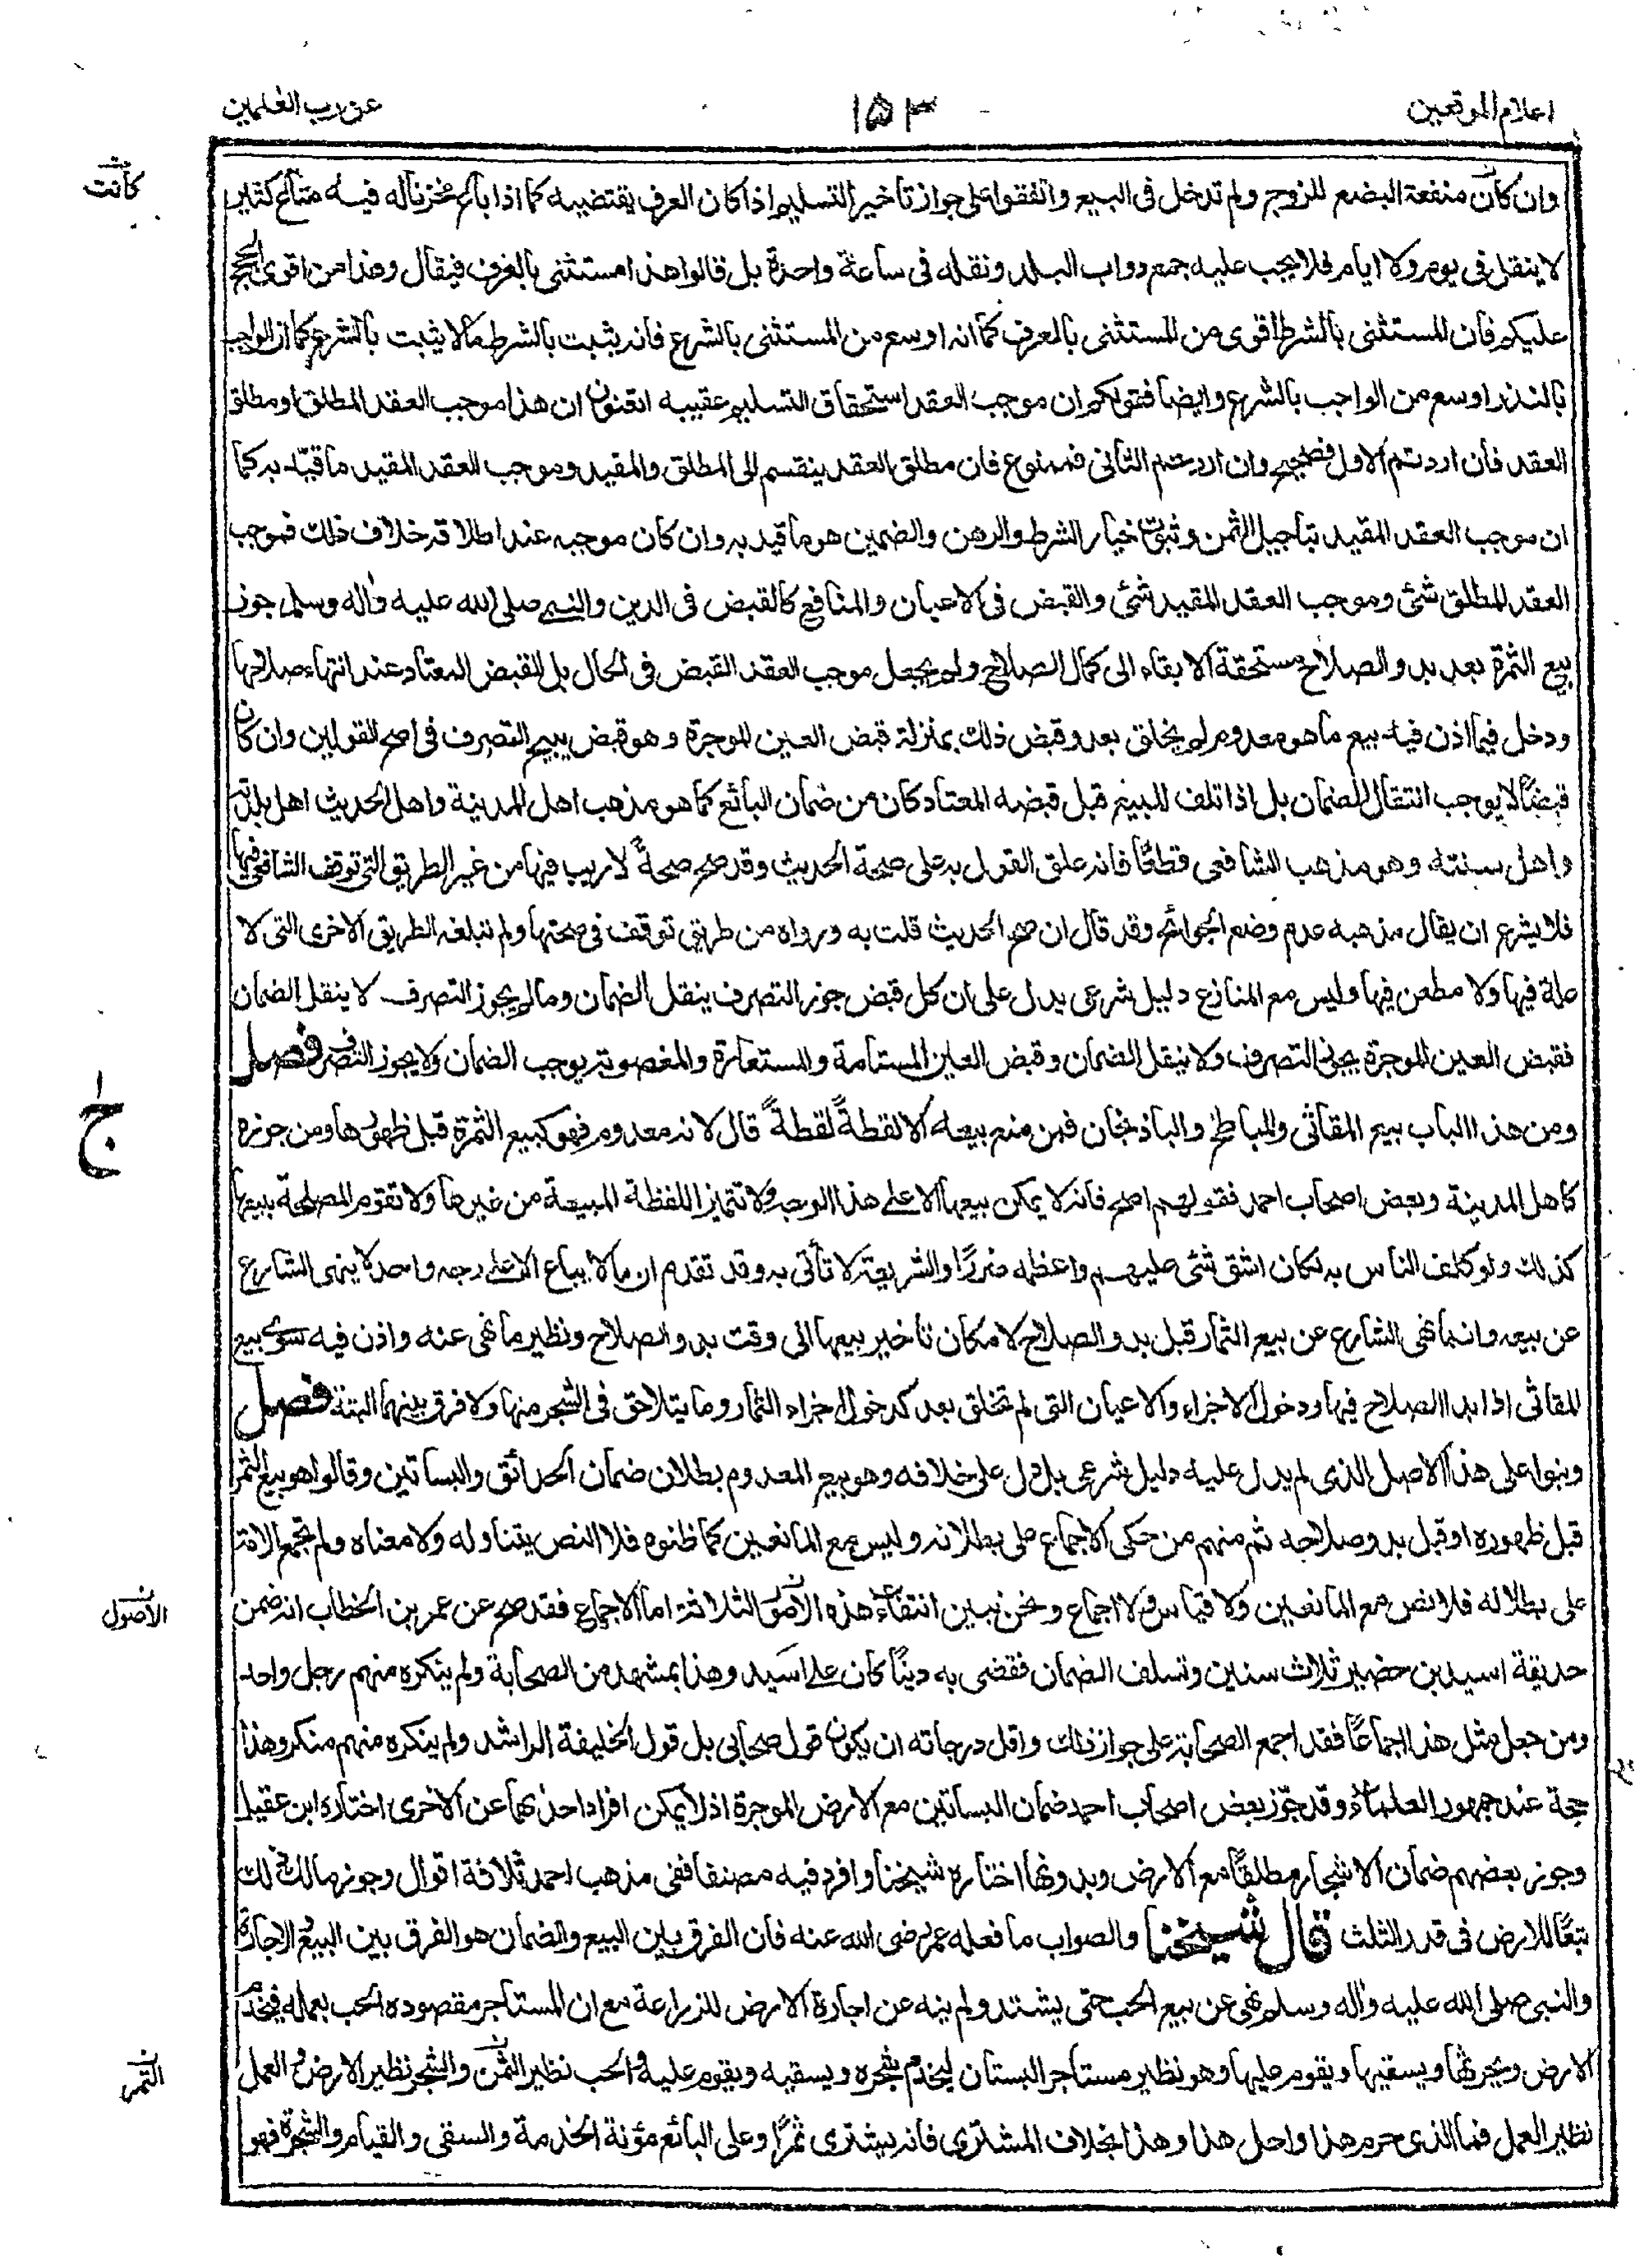 اعلام الموقعین
۱۵۳
عن رب العلمین
وان كان منفعة البضع للزوج ولم تدخل فى البيع واتفقوا على جواز تاخير التسليم اذا كان العرف يقتضيه كما اذا باع مخزنا له فيه متاع كثير
كانت
لا ينقل فى يوم ولا ايام فلا يجب عليه جمع دواب البلد ونقله فى ساعة واحدة بل قالوا هذا مستثنى بالعرف فيقال وهذا من اقوى الحجج
عليكم فان المستثنى بالشرط اقوى من المستثنى بالعرف كما انه اوسع من المستثنى بالشرع فانه يثبت بالشرط مالا يثبت بالشرع كما ان الواجب
بالنذر اوسع من الواجب بالشرع وايضا فقولكم ان موجب العقد استحقاق التسليم عقيبه اتعنون ان هذا موجب العقد المطلق او مطلق
العقد فان اردتم الاول فصحيح وان اردتم الثانى فممنوع فان مطلق العقد ينقسم الى المطلق والمقيد وموجب العقد المقيد ما قيّد به كما
ان موجب العقد المقيد بتاجيل الثمن وثبوت خيار الشرط والرهن والضمين هو ما قيد به وان كان موجبه عند اطلاقه خلاف ذلك فموجب
العقد المطلق شئ وموجب العقد المقيد شئ والقبض فى الاعيان والمنافع كالقبض فى الدين والنبى صلى الله عليه واله وسلم جوز
بيع الثمرة بعد بدو الصلاح مستحقة الابقاء الى كمال الصلاح ولم يجعل موجب العقد القبض فى الحال بل القبض المعتاد عند انتهاء صلاحها
ودخل فيما اذن فيه بيع ما هو معدوم لم يخلق بعد وقبض ذلك بمنزلة قبض العين الموجرة وهو قبض يبيح التصرف فى اصح القولين وان كان
قبضًا لا يوجب انتقال الضمان بل اذا تلف المبيع قبل قبضه المعتاد كان من ضمان البائع كما هو مذهب اهل المدينة واهل الحديث اهل بلدته
واهل سنته وهو مذهب الشافعى قطعًا فانه علق القول به على صحة الحديث وقد صح صحةً لا ريب فيها من غير الطريق التى توقف الشافعى فيها
فلا يشرع ان يقال مذهبه عدم وضع الجوائح وقد قال ان صح الحديث قلت به ورواه من طريق توقف فى صحتها ولم تبلغه الطريق الاخرى التى لا
علة فيها ولا مطعن فيها وليس مع المنازع دليل شرعى يدل على ان كل قبض جوز التصرف ينقل الضمان وما لم يجوز التصرف لا ينقل الضمان
فقبض العين الموجرة يجوز التصرف ولا ينقل الضمان وقبض العين المستامة والمستعارة والمغصوبة يوجب الضمان ولا يجوز التصرف فصل
ومن هذا الباب بيع المقاثى والمباطخ والباذنجان فمن منع بيعه الا لقطةً لقطةً قال لانه معدوم فهو كبيع الثمرة قبل ظهورها ومن جوزه
كاهل المدينة وبعض اصحاب احمد فقولهم اصح فانه لا يمكن بيعها الا على هذا الوجه ولا تتميز اللقطة المبيعة من غيرها ولا تقوم المصلحة ببيعها
كذلك ولو كلف الناس به لكان اشق شئ عليهم واعظمه ضررًا والشريعة لا تأتى به وقد تقدم ان مالا يباع الا على وجه واحد لا ينهى الشارع
عن بيعه وانما نهى الشارع عن بيع الثمار قبل بدو الصلاح لامكان تاخير بيعها الى وقت بدو الصلاح ونظير ما نهى عنه واذن فيه سوى بيع
المقاثى اذا بدا الصلاح فيها ودخول الاجزاء والاعيان التى لم تخلق بعد كدخول اجزاء الثمار وما يتلاحق فى الشجر منها ولا فرق بينهما البتة فصل
وبنوا على هذا الاصل الذى لم يدل عليه دليل شرعى بل دل على خلافه وهو بيع المعدوم بطلان ضمان الحدائق والبساتين وقالوا هو بيع الثمر
قبل ظهوره او قبل بدو صلاحه ثم منهم من حكى الاجماع على بطلانه وليس مع المانعين كما ظنوه فلا النص يتناوله ولا معناه ولم تجمع الامة
على بطلاله فلا نص مع المانعين ولا قياس ولا اجماع ونحن نبين انتفاء هذه الاصول الثلاثة اما الاجماع فقد صح عن عمر بن الخطاب انه ضمن
الأصول
حديقة اسيد بن حضير ثلاث سنين وتسلف الضمان فقضى به دينًا كان على اسيد وهذا بمشهد من الصحابة ولم ينكره منهم رجل واحد
ومن جعل مثل هذا اجماعًا فقد اجمع الصحابة على جواز ذلك واقل درجاته ان يكون قول صحابى بل قول الخليفة الراشد ولم ينكره منهم منكر وهذا
حجة عند جمهور العلماء وقد جوّز بعض اصحاب احمد ضمان البساتين مع الارض الموجرة اذ لا يمكن افراد احدهما عن الاخرى اختاره ابن عقيل
وجوز بعضهم ضمان الاشجار مطلقًا مع الارض وبدونها اختاره شيخنا وافرد فيه مصنفا ففى مذهب احمد ثلاثة اقوال وجوز مالك ذلك
تبعًا للارض فى قدر الثلث قال شيخنا والصواب ما فعله عمر رضى الله عنه فان الفرق بين البيع والضمان هو الفرق بين البيع والاجارة
والنبى صلى الله عليه واله وسلم نهى عن بيع الحب حتى يشتد ولم ينه عن اجارة الارض للزراعة مع ان المستاجر مقصوده الحب بعمله فيخدم
الارض ويحرثها ويسقيها ويقوم عليها وهو نظير مستاجر البستان ليخدم شجره ويسقيه ويقوم عليه والحب نظير الثمن والشجر نظير الارض والعمل
الثمر
نظير العمل فما الذى حرم هذا واحل هذا وهذا بخلاف المشترى فانه يشترى ثمرًا وعلى البائع مؤنة الخدمة والسقى والقيام والشجرة فهو